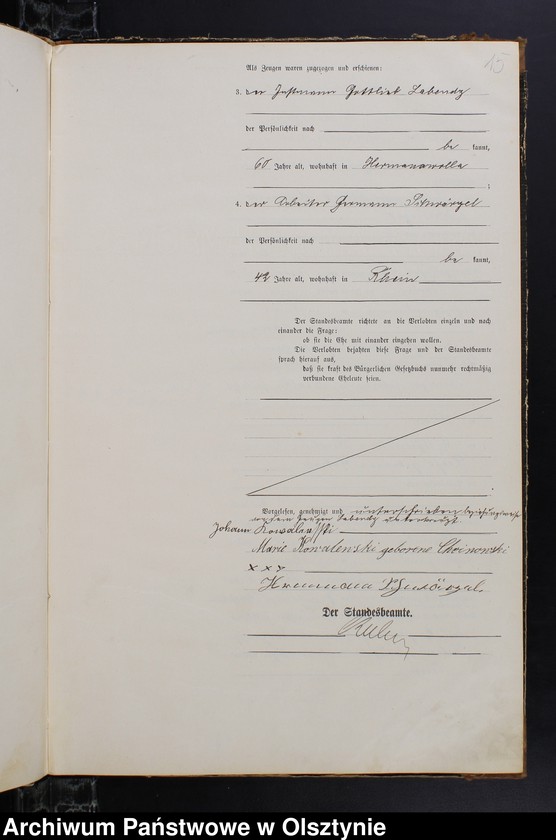 15
Als Zeugen waren zugezogen und erschienen:
3. der Instmann Gottlieb Labendz
der Persönlichkeit nach
be kannt,
60 Jahre alt, wohnhaft in Hermanawolla
;
4. der Arbeiter Hermann
der Persönlichkeit nach
be kannt,
42 Jahre alt, wohnhaft in Rhein
Der Standesbeamte richtete an die Verlobten einzeln und nach
einander die Frage:
ob sie die Ehe mit einander eingehen wollen.
Die Verlobten bejahten diese Frage und der Standesbeamte
sprach hierauf aus,
daß sie kraft des Bürgerlichen Gesetzbuchs nunmehr rechtmäßig
verbundene Eheleute seien.
Vorgelesen, genehmigt und unterschrieben beziehungsweise
Zeugen Labendz unterkreuzt
Johann Kowalewski
Marie Kowalewski geborene Choinowski
x x x
Hermann
Der Standesbeamte.
Archiwum Państwowe w Olsztynie